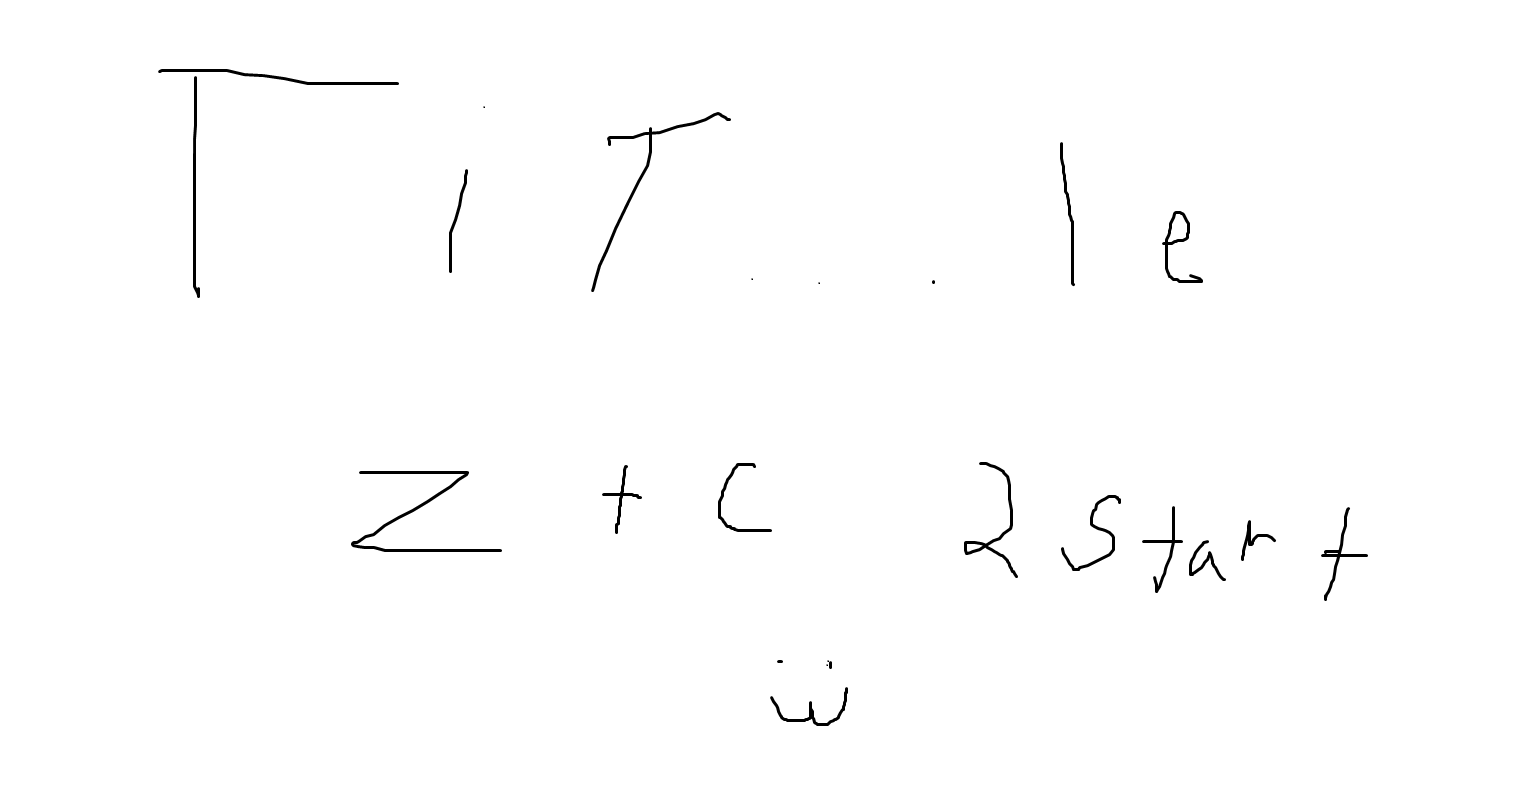 TiT...le
Z + C 2 Start